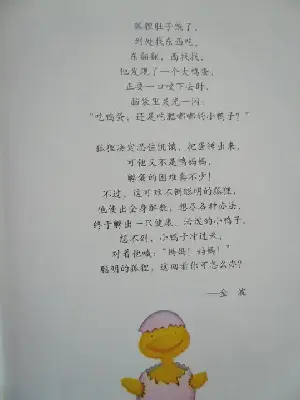 狐狸肚子饿了，
到处找东西吃，
东翻翻，西找找，
他发现了一个大鸭蛋，
正要一口咬下去时，
脑袋里灵光一闪：
“吃鸭蛋，还是吃肥嘟嘟的小鸭子？”
狐狸决定忍住饥饿，把蛋孵出来，
可他又不是鸭妈妈，
孵蛋的困难真不少！
不过，这可难不倒聪明的狐狸，
他使出全身解数，想尽各种办法，
终于孵出一只健康、活泼的小鸭子，
想不到，小鸭子冲过来，
对着他喊：“妈妈！妈妈！”
聪明的狐狸，这回看你可怎么办？